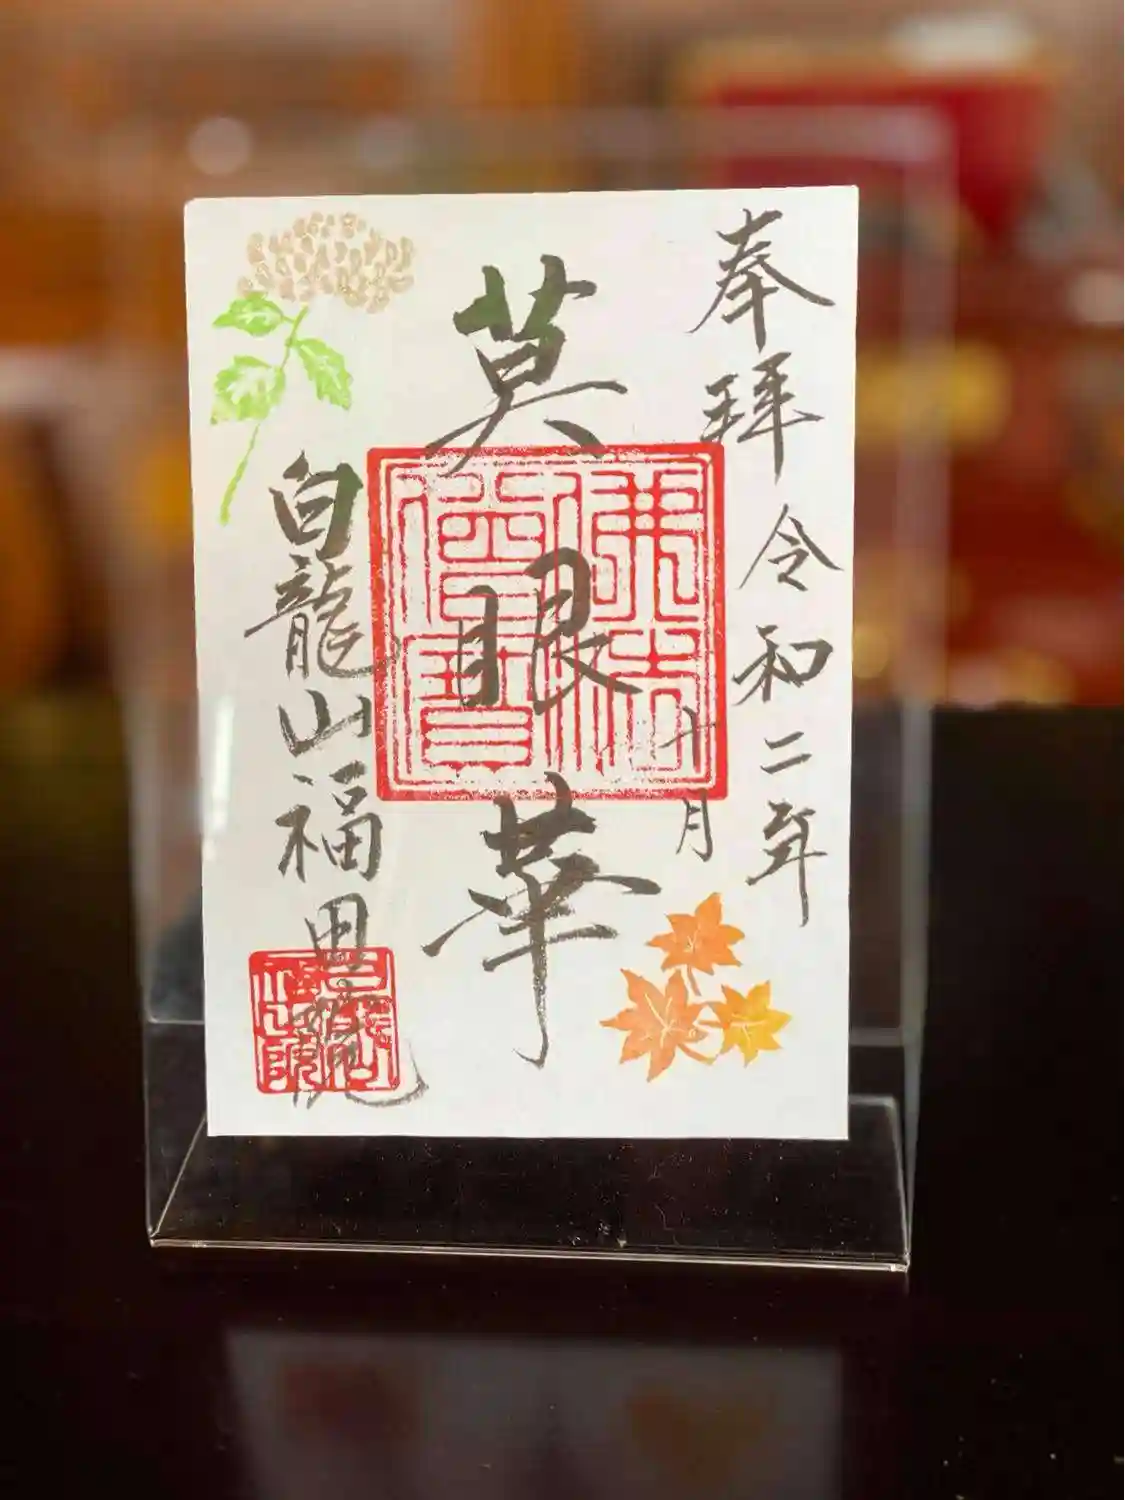 奉拜 令和二年
十月
莫眼華
佛法僧寶
白龍山福田院